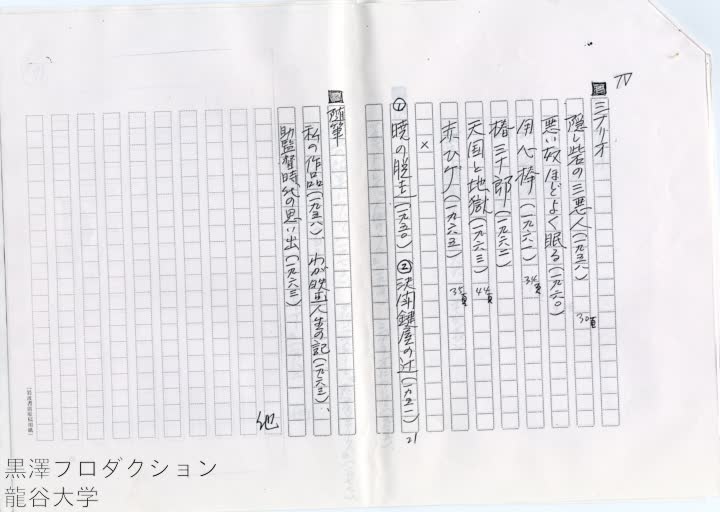 IV
■シナリオ
隠し砦の三悪人(一九五八) 30頁
悪い奴ほどよく眠る(一九六〇)
用心棒(一九六一) 34頁
椿三十郎(一九六二)
天国と地獄(一九六三) 44頁
赤ひげ(一九六五) 35頁
×
①暁の脱走(一九五〇) ②決闘鍵屋の辻(一九五一) 21
■随筆
私の作品(一九五八)、わが映画人生の記(一九六三)、
助監督時代の思い出(一九六三)
他
黒澤フロダクション
龍谷大学